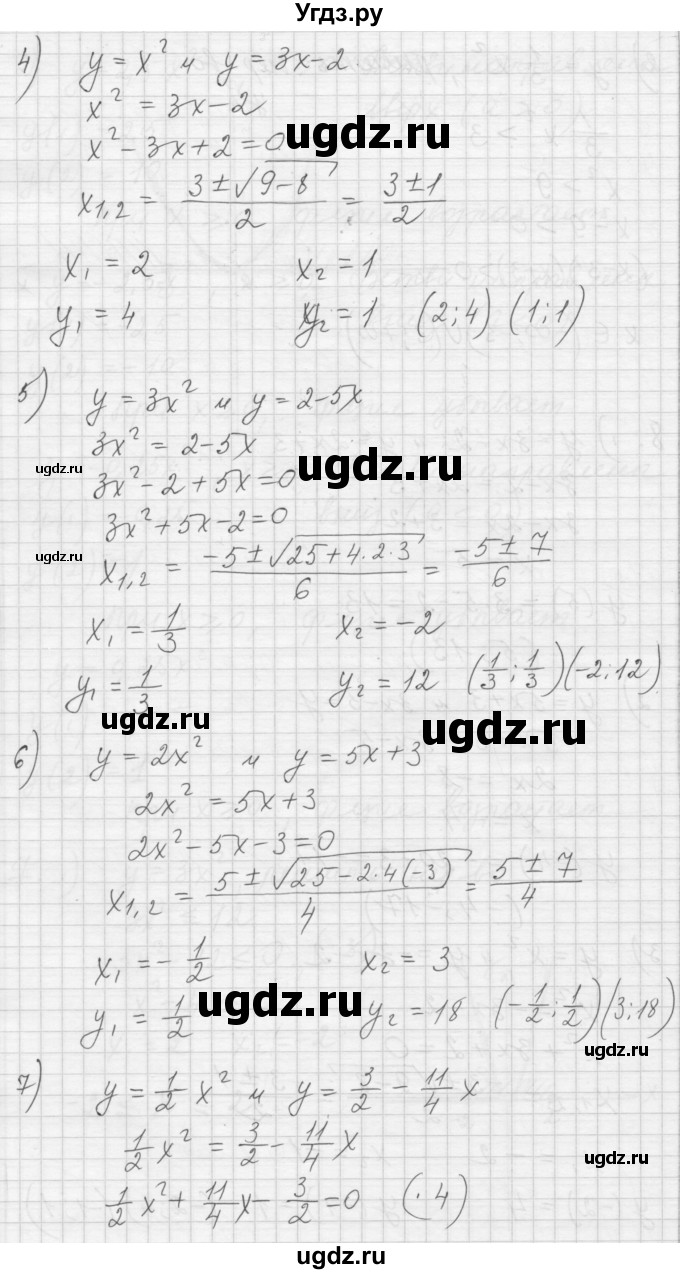 Угдз.ру
4) y = x² и y = 3x-2.
x² = 3x-2
x² - 3x+2 = 0
ugdz.ru
x₁,₂ = (3 ± √(9-8))/2 = (3±1)/2
x₁ = 2 x₂ = 1
y₁ = 4 y₂ = 1 (2;4) (1;1)
5) y = 3x² и y = 2-5x
3x² = 2-5x
ugdz.ru ugdz.ru
3x² - 2 + 5x = 0
3x² + 5x - 2 = 0
ugdz.ru
x₁,₂ = (-5 ± √(25+4·2·3))/6 = (-5 ± 7)/6
x₁ = 1/3 x₂ = -2
y₁ = 1/3 y₂ = 12 (1/3; 1/3) (-2; 12)
ugdz.ru ugdz.ru
6) y = 2x² и y = 5x+3
2x² = 5x+3
2x² - 5x - 3 = 0
x₁,₂ = (5 ± √(25-2·4(-3)))/4 = (5 ± 7)/4
x₁ = -1/2 x₂ = 3
ugdz.ru
y₁ = 1/2 y₂ = 18 (-1/2; 1/2) (3; 18)
ugdz.ru
7) y = 1/2 x² и y = 3/2 - 11/4 x
1/2 x² = 3/2 - 11/4 x
ugdz.ru
1/2 x² + 11/4 x - 3/2 = 0 (·4)
ugdz.ru